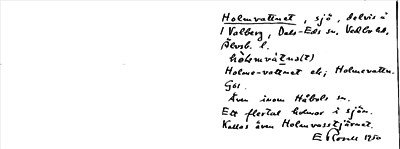 Holmvattnet, sjö, delvis å
1 Valberg, Dals-Eds sn, Vedbo hd,
Älvsb. l.
hòlmvàtnə(t)
Holme-vattnet ek; Holmevattn.
GS1
Även inom Håbols sn.
Ett flertal holmar i sjön.
Kallas även Holmvasstjärnet.
1950